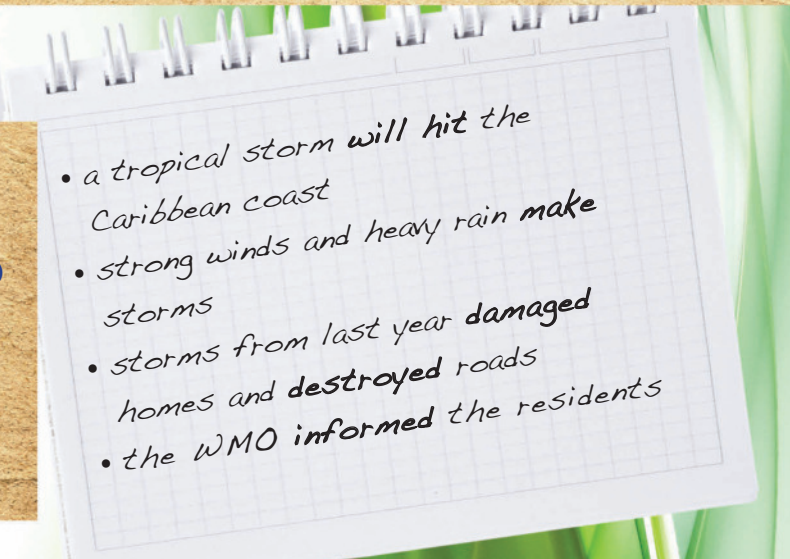 • a tropical storm will hit the
Caribbean coast
• strong winds and heavy rain make
storms
• storms from last year damaged
homes and destroyed roads
• the WMO informed the residents